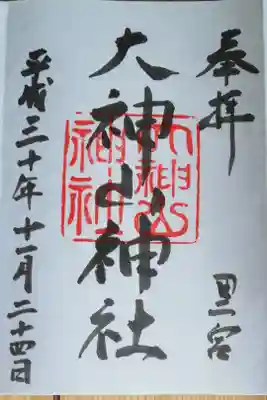 奉拝
二宮
大神山神社
大神山神社
平成三十年十一月二十四日